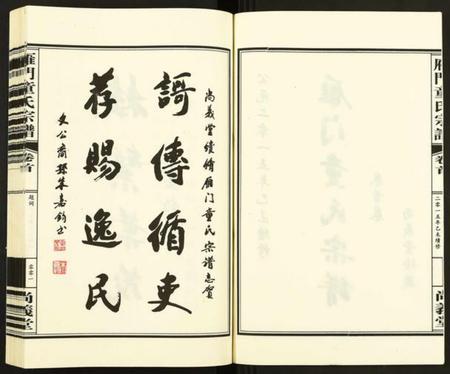 雁門童氏宗譜
卷首
二零一五年乙未續修
尚義堂
尚義堂續脩雁门童氏宗谱志賀
謌傳循吏
荐賜逸民
文公裔孫朱嘉鈞书
雁門童氏宗譜
卷首
題詞
尚義堂